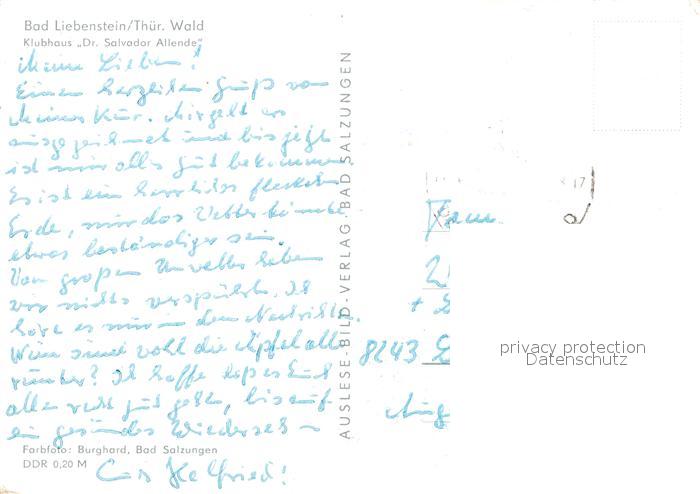 Bad Liebenstein/Thür. Wald
Klubhaus „Dr. Salvador Allende"
Meine Lieben!
Einen herzlichen Gruß von
meiner Kur. Mir geht es
ausgezeichnet und bis jetzt
ist mir alles gut bekommen.
Es ist ein herrliches Fleckchen
Erde, nur das Wetter könnte
etwas beständiger sein.
Von großen Unwetter haben
wir nichts verspürt. Ich
höre es nur in den Nachrichten.
sind wohl die Äpfel alle
runter? Ich hoffe daß es Euch
allen recht gut geht, bis auf
ein gesundes Wiedersehn
Farbfoto: Burghard, Bad Salzungen
DDR 0,20 M
Helfried!
AUSLESE-BILD-VERLAG, BAD SALZUNGEN
17
Fam.
8243
privacy protection
Datenschutz